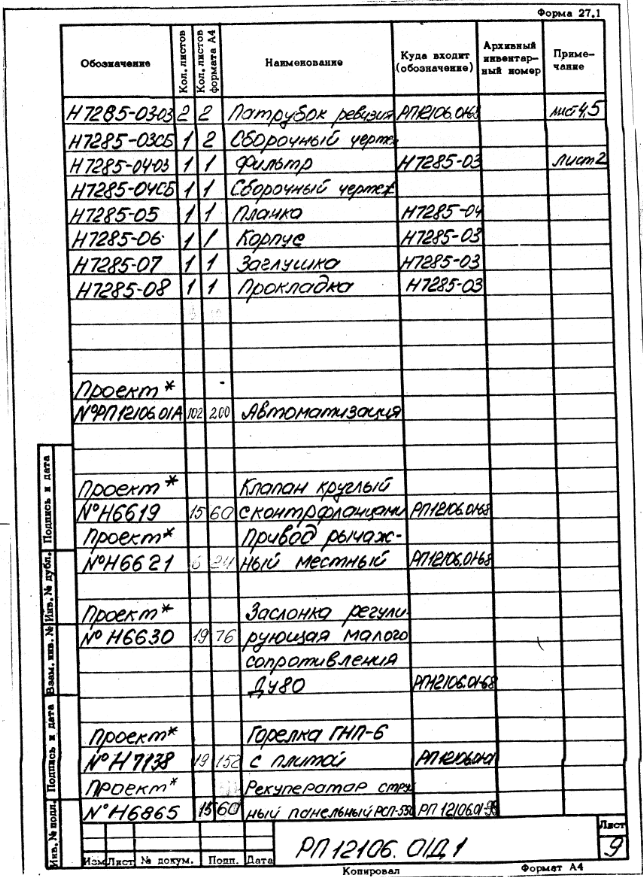 Форма 27.1
Обозначение Кол. листов Кол. листов формата А4 Наименование Куда входит (обозначение) Архивный инвентар-ный номер Приме-чание
Н7285-03-03 2 2 Патрубок ревизия РП12106.01-68 лист 4,5
Н7285-03СБ 1 2 Сборочный черте
Н7285-04-03 1 1 Фильтр Н7285-03 Лист 2
Н7285-04СБ 1 1 Сборочный чертеж
Н7285-05 1 1 Планка Н7285-04
Н7285-06 1 1 Корпус Н7285-03
Н7285-07 1 1 Заглушка Н7285-03
Н7285-08 1 1 Прокладка Н7285-03
Проект*
№РП12106.01А 102 200 Автоматизация
Проект* Клапан круглый
№Н6619 15 60 с контрфланцами РП12106.01-68
Проект* Привод рычаж-
№Н6621 6 24 ный местный РП12106.01-68
Проект* Заслонка регули
№Н6630 19 76 рующая малого
сопротивления
Ду80 РП12106.01-68
Проект* Горелка ГНП-6
№Н7138 19 152 с плитой
Проект* Рекуператор стру
№Н6865 15 60 ный панельный РСП-550
Изм Лист № докум. Подп. Дата
РП12106.01Д1
Лист
9
Копировал Формат А4
Инв. № подл. Подпись и дата Взам. инв. № Инв. № дубл. Подпись и дата